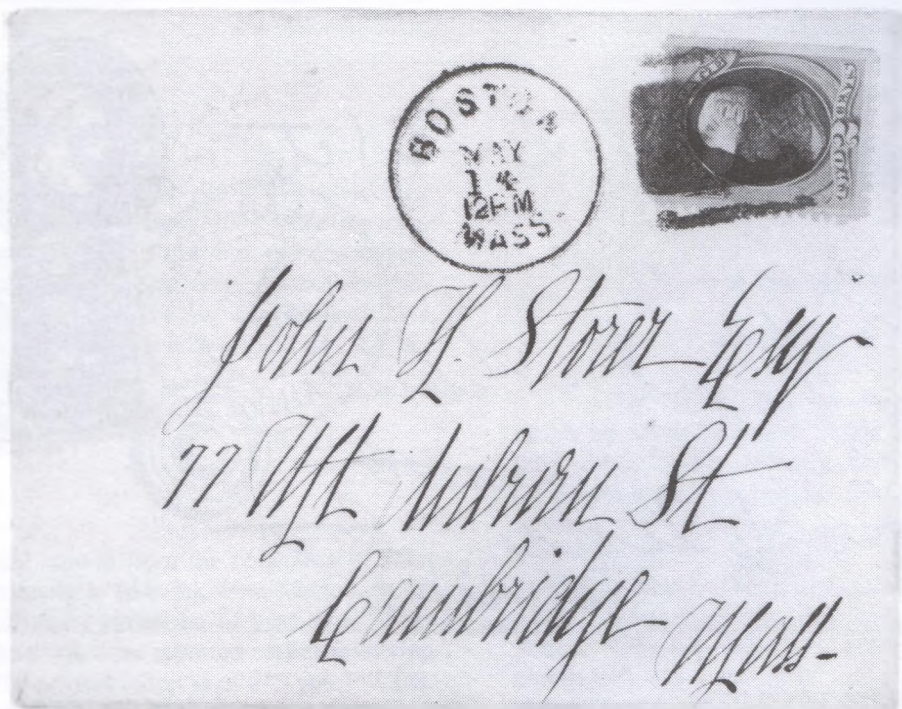 BOSTON
MAY
14
12PM
MASS
John H. Storer Esq
77 Mt Auburn St
Cambridge Mass-